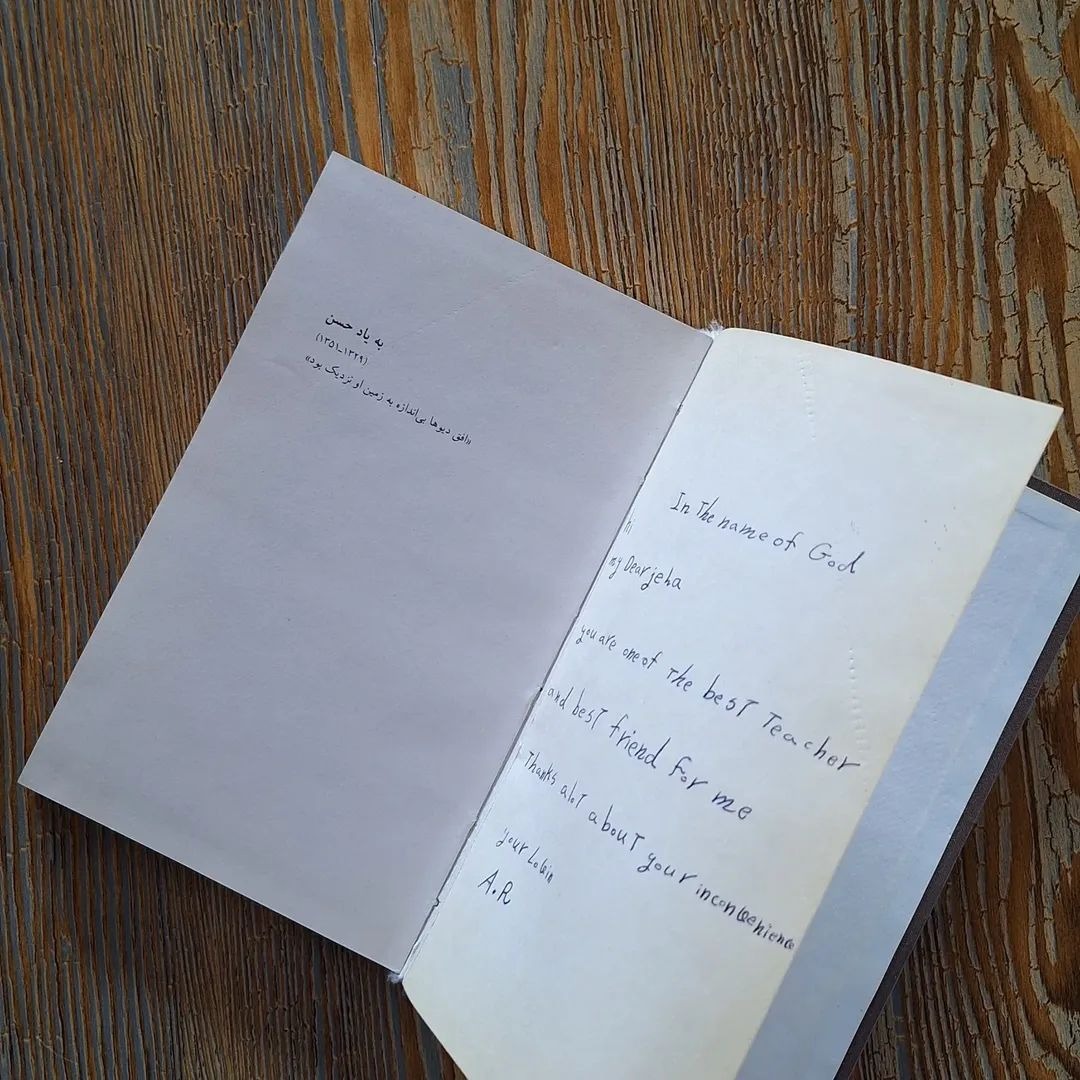 به یاد حسن
(۱۳۲۹_۱۳۵۱)
«افق دیوها بی‌اندازه به زمین او نزدیک بود»
In The name of God
hi
my Dear jeha
you are one of The besT Teacher
and besT friend for me
Thanks aloT abouT your inconvenience
your
A.R